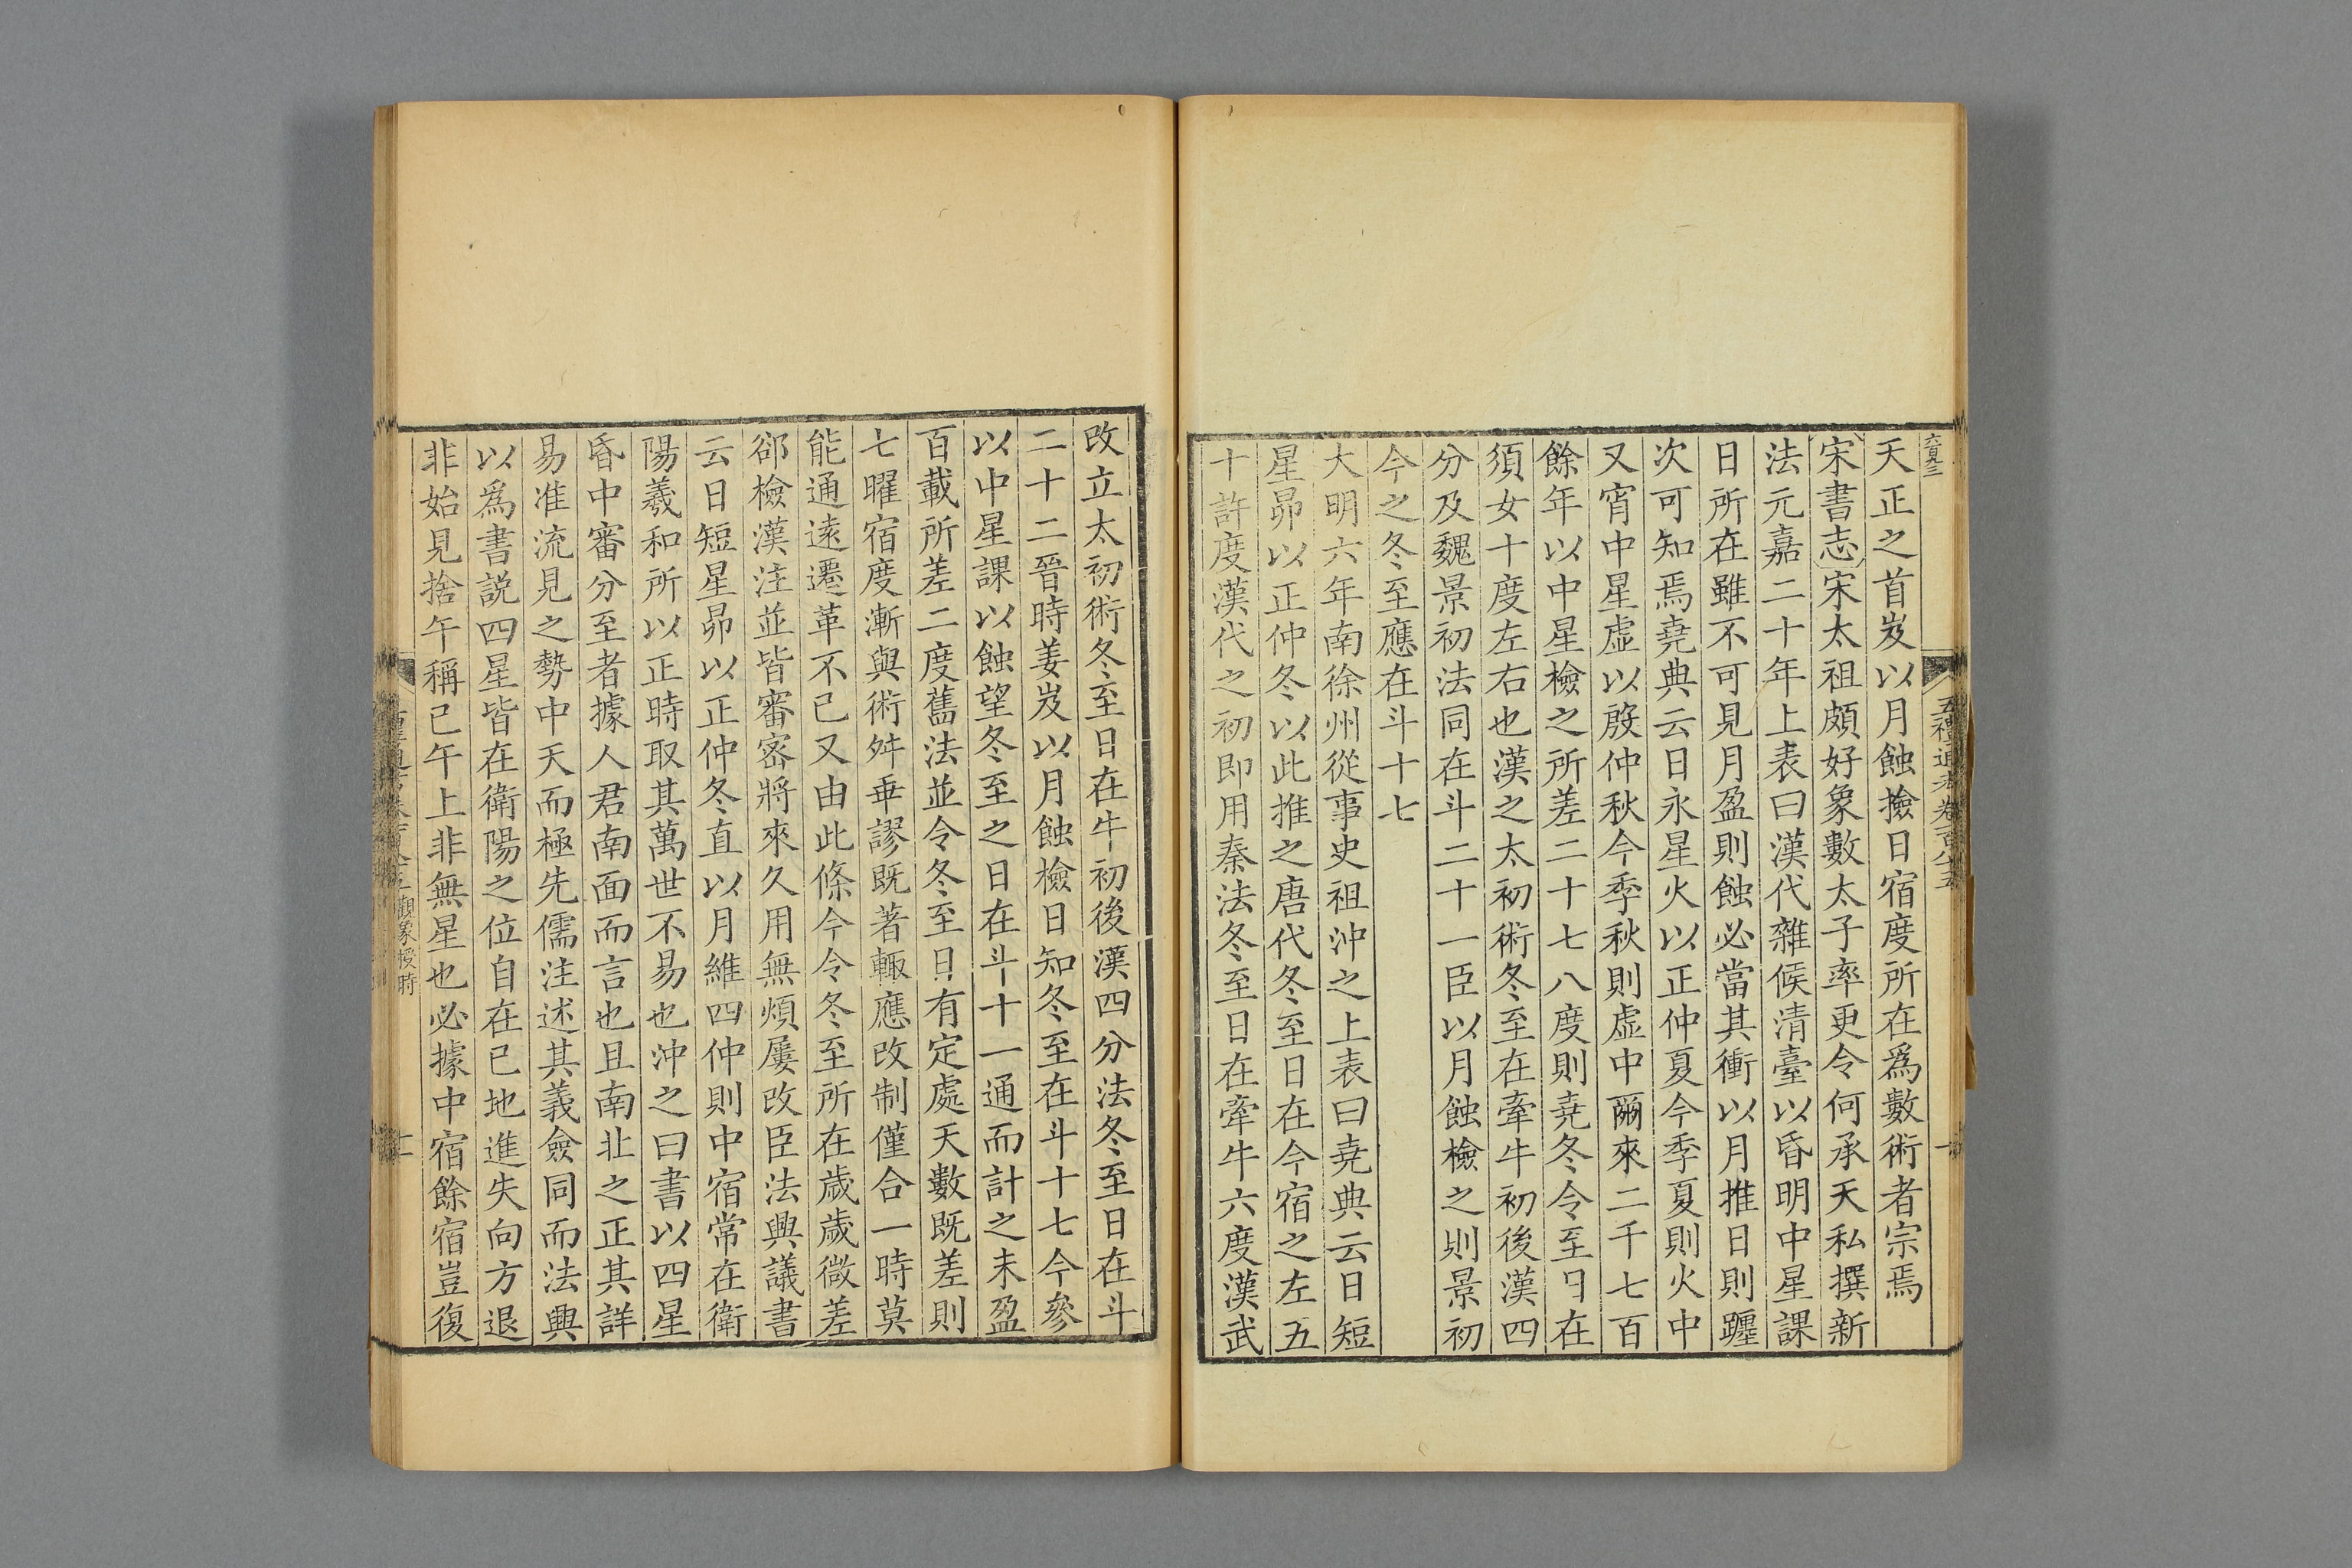 天正之首岁以月蝕撿日宿度所在爲數術者宗焉
宋書志宋太祖頗好象數太子率更令何承天私撰新
法元嘉二十年上表曰漢代雜候清臺以昏明中星課
日所在雖不可見月盈則蝕必當其衝以月推日則躔
次可知焉堯典云日永星火以正仲夏今季夏則火中
又宵中星虛以殷仲秋今季秋則虛中爾來二千七百
餘年以中星檢之所差二十七八度則堯冬令至日在
須女十度左右也漢之太初術冬至在牽牛初後漢四
分及魏景初法同在斗二十一臣以月蝕檢之則景初
今之冬至應在斗十七
大明六年南徐州從事史祖沖之上表曰堯典云日短
星昴以正仲冬以此推之唐代冬至日在今宿之左五
十許度漢代之初即用秦法冬至日在牽牛六度漢武
五禮通考卷百八十五
改立太初術冬至日在牛初後漢四分法冬至日在斗
二十二晉時姜岌以月蝕檢日知冬至在斗十七今參
以中星課以蝕望冬至之日在斗十一通而計之未盈
百載所差二度舊法並令冬至日有定處天數既差則
七曜宿度漸與術舛乖謬既著輒應改制僅合一時莫
能通遠遷革不已又由此條今令冬至所在歲歲微差
郤檢漢注並皆審密將來久用無煩屢改臣法興議書
云日短星昴以正仲冬直以月維四仲則中宿常在衛
陽羲和所以正時取其萬世不易也沖之曰書以四星
昏中審分至者據人君南面而言也且南北之正其詳
易准流見之勢中天而極先儒注述其義僉同而法興
以爲書説四星皆在衛陽之位自在已地進失向方退
非始見捨午稱已午上非無星也必據中宿餘宿豈復
觀象授時